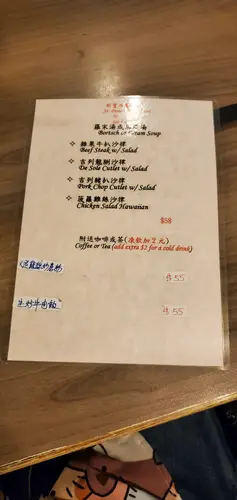 羅宋湯或忌廉湯
Bortsch or Cream Soup
雜果牛扒沙律
Beef Steak w/ Salad
吉列龍脷沙律
De Sole Cutlet w/ Salad
吉列豬扒沙律
Pork Chop Cutlet w/ Salad
菠蘿雞絲沙律
Chicken Salad Hawaiian
$58
附送咖啡或茶(凍飲加2元)
Coffee or Tea (add extra $2 for a cold drink)
$55
生炒牛肉飯
$55